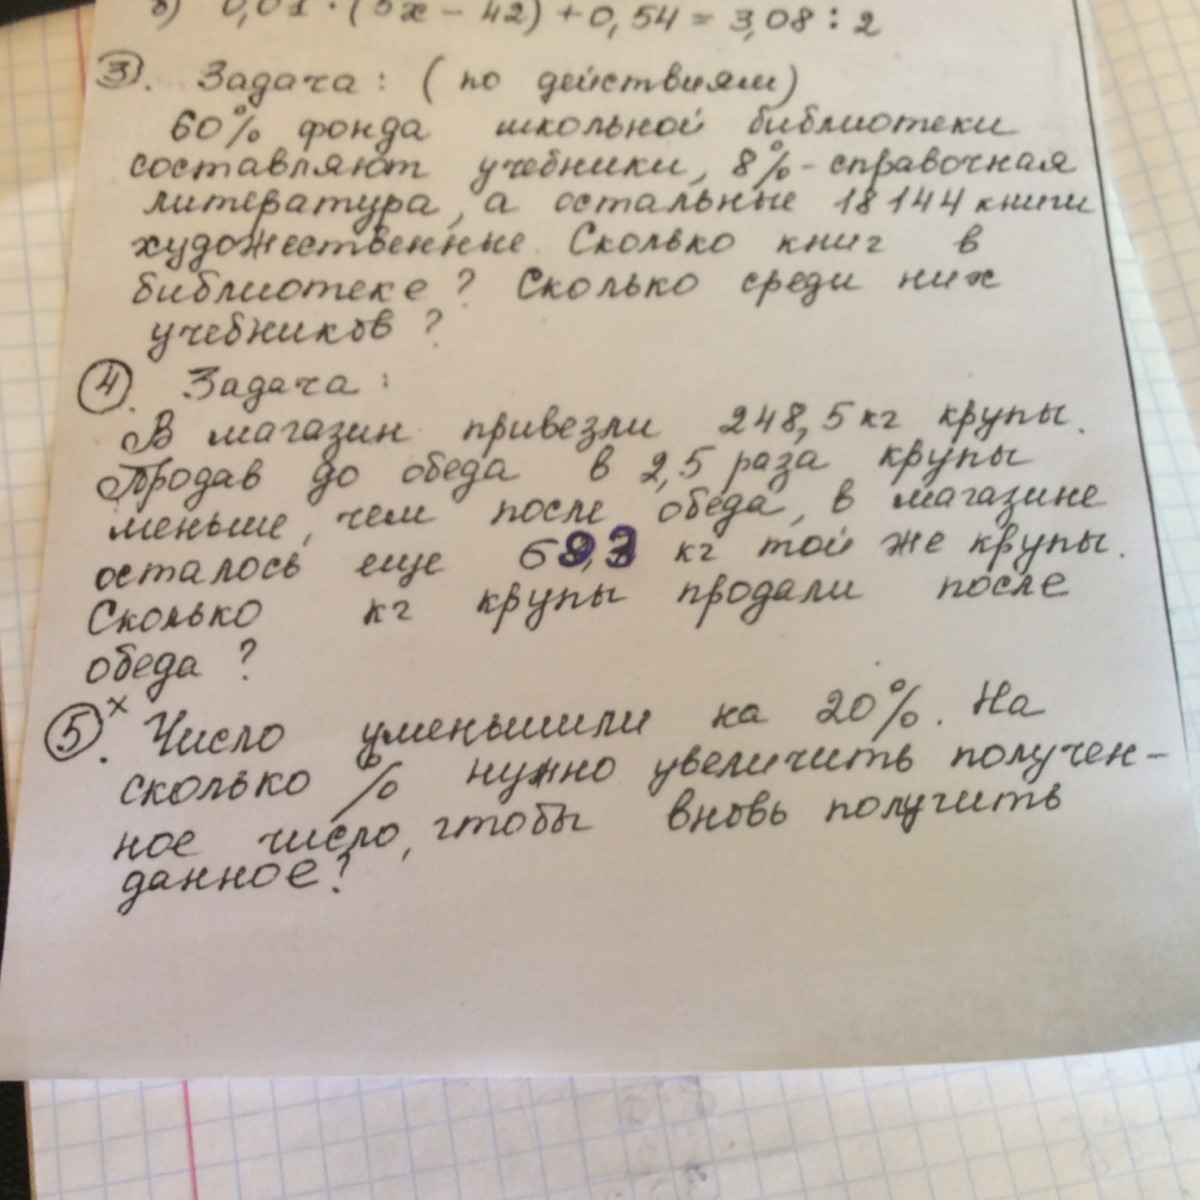 б) 0,01 · (5х - 42) + 0,54 = 3,08 : 2
3. Задача: (по действиям)
60% фонда школьной библиотеки
составляют учебники, 8% - справочная
литература, а остальные 18144 книги
художественные. Сколько книг в
библиотеке? Сколько среди них
учебников?
4. Задача:
В магазин привезли 248,5 кг крупы.
Продав до обеда в 2,5 раза крупы
меньше, чем после обеда, в магазине
осталось еще кг той же крупы.
Сколько кг крупы продали после
обеда?
5x. Число уменьшили на 20%. На
сколько % нужно увеличить получен-
ное число, чтобы вновь получить
данное?